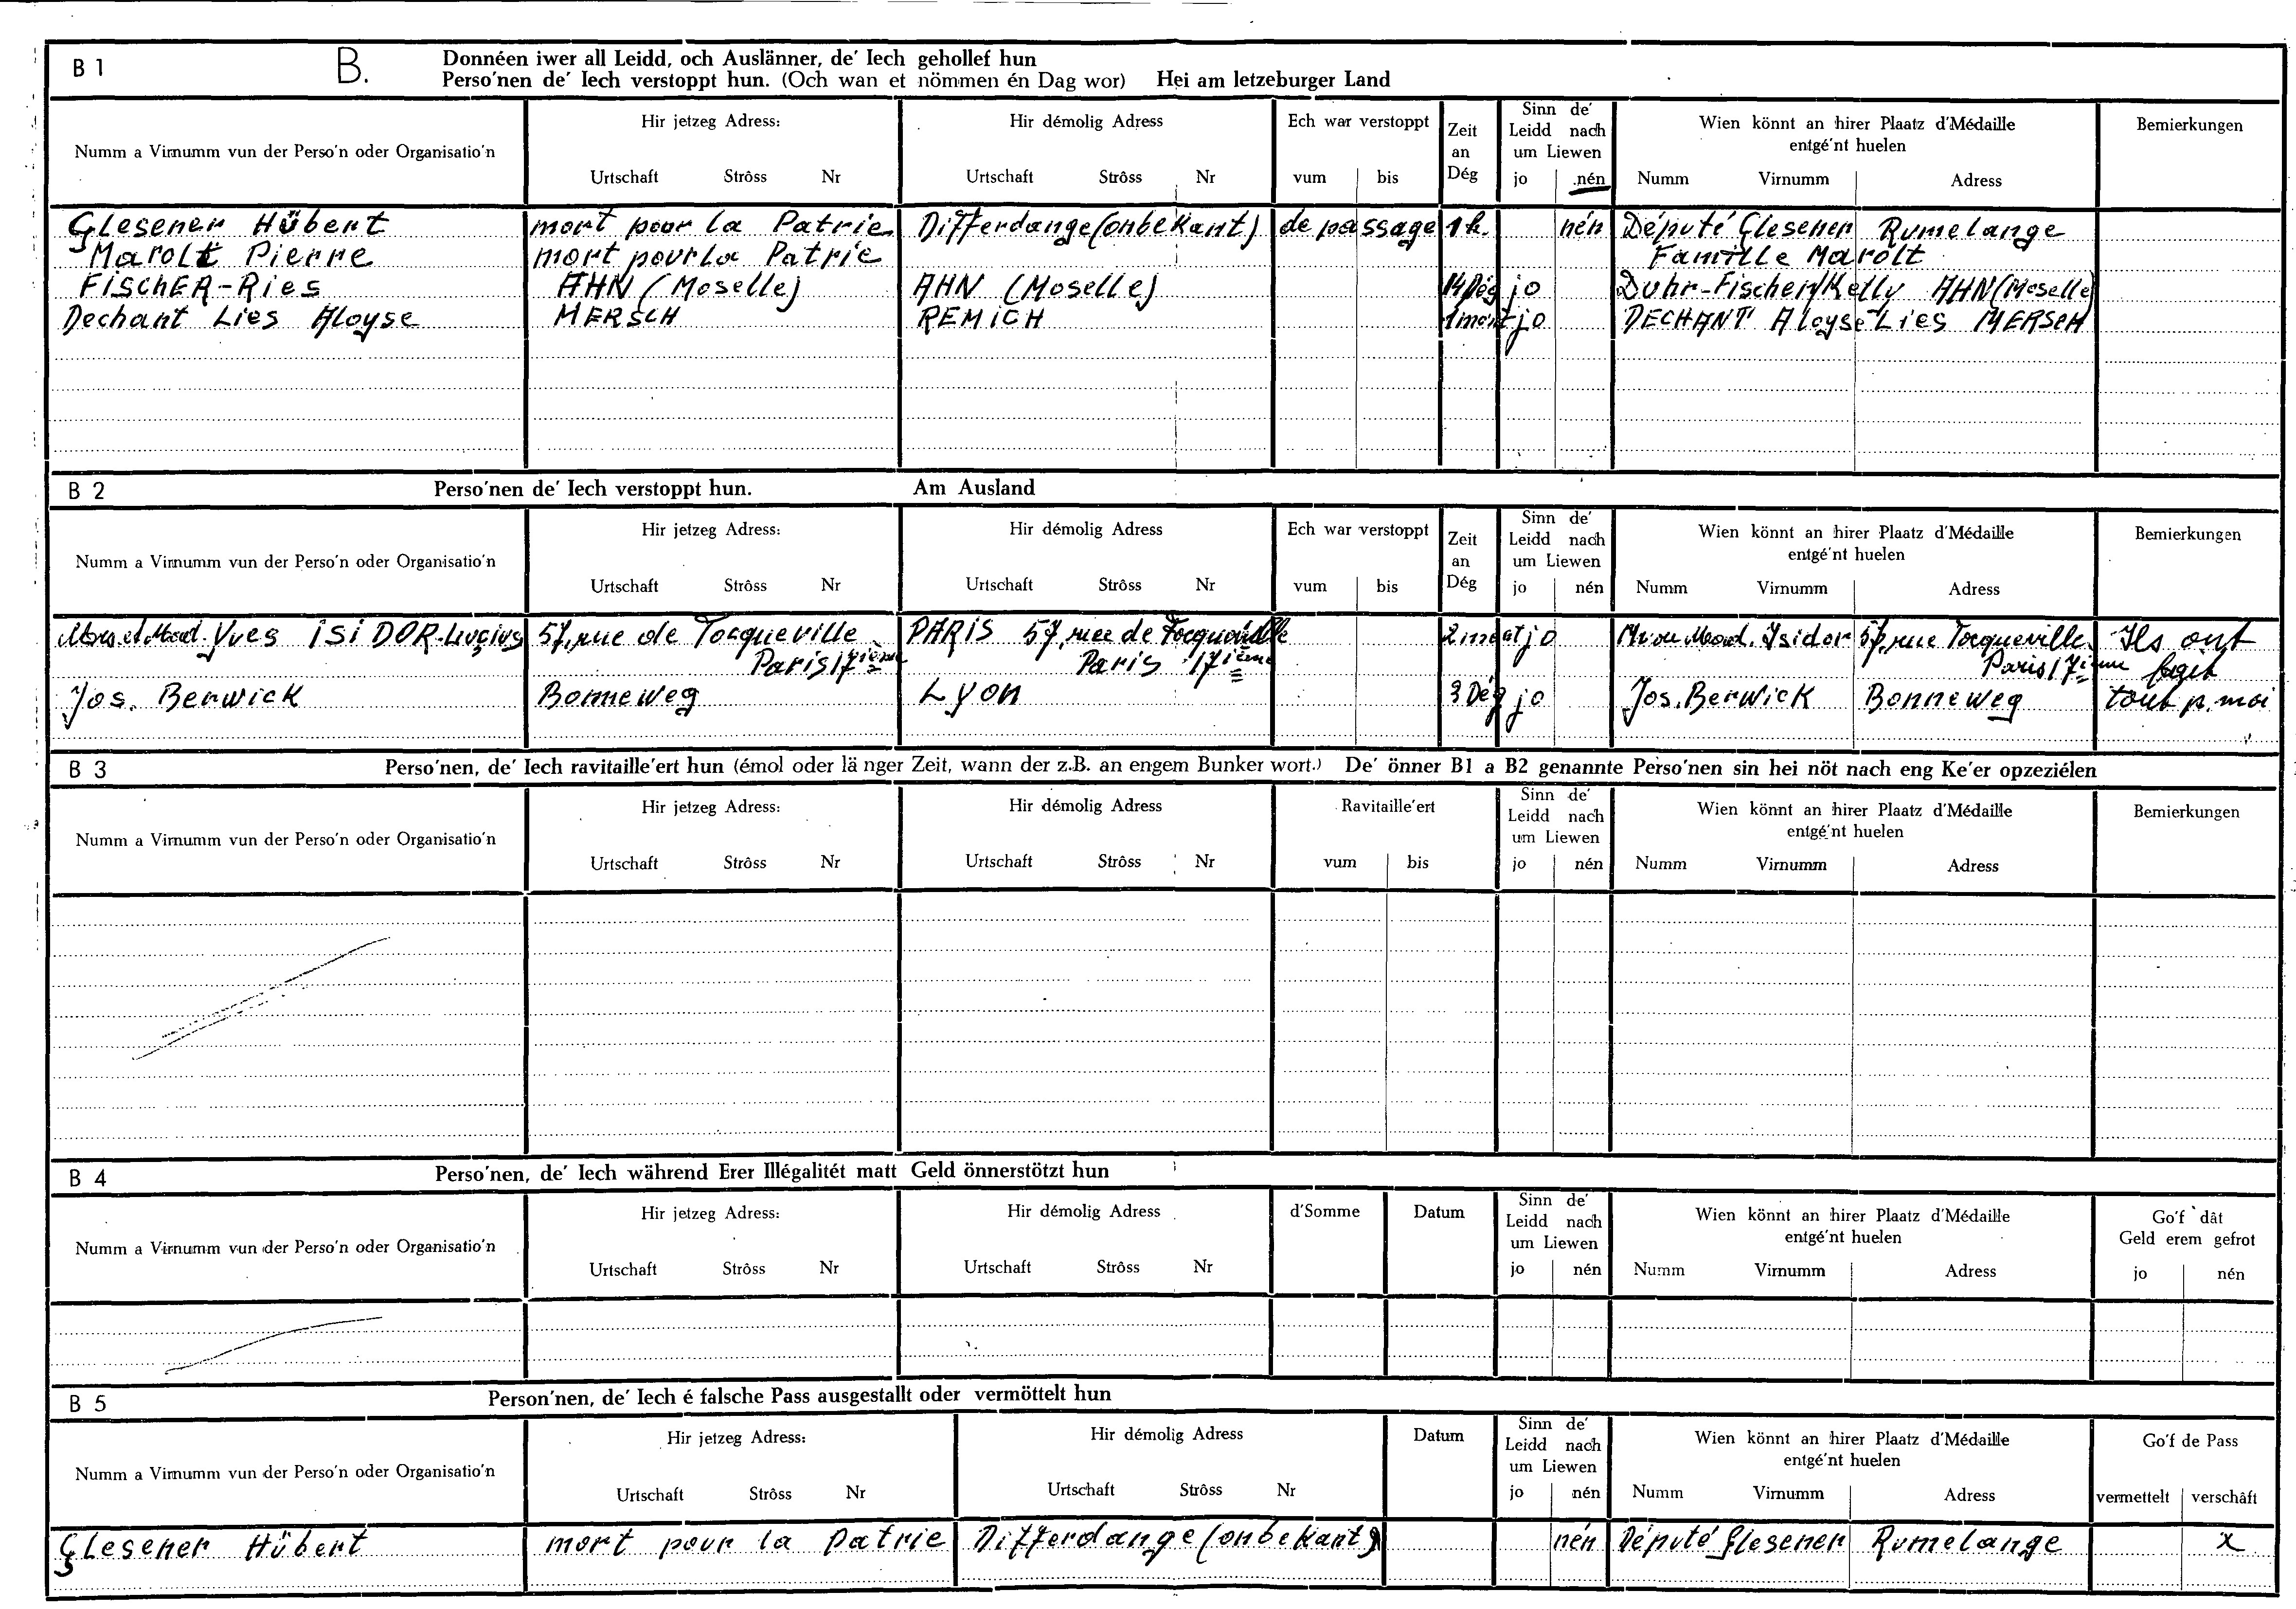 B 1 B. Donnéen iwer all Leidd, och Auslänner, de' Iech gehollef hun
Perso'nen de' Iech verstoppt hun. (Och wan et nömmen én Dag wor) Hei am letzeburger Land
Numm a Virnumm vun der Perso'n oder Organisatio'n
Hir jetzeg Adress:
Urtschaft Strôss Nr
Hir démolig Adress
Urtschaft Strôss Nr
Ech war verstoppt
vum bis
Zeit
an
Dég
Sinn de'
Leidd nach
um Liewen
jo nén
Wien könnt an hirer Plaatz d'Médaille
entgé'nt huelen
Numm Virnumm Adress
Bemierkungen
Glesener Hübert mort pour la Patrie Differdange (onbekant) de passage 1 h. nén Députė Glesener Rumelange
Marolt Pierre mort pour la Patrie Famille Marolt
FischER-Ries AHN (Moselle) AHN (Moselle) 14 Dég jo Duhr-Fischer/Kelly AHN (Moselle)
Dechant Lies Aloyse MERSCH REMICH 1 mont jo DECHANT Aloyse Lies MERSCH
B 2 Perso'nen de' Iech verstoppt hun. Am Ausland
Numm a Virnumm vun der Perso'n oder Organisatio'n
Hir jetzeg Adress:
Urtschaft Strôss Nr
Hir démolig Adress
Urtschaft Strôss Nr
Ech war verstoppt
vum bis
Zeit
an
Dég
Sinn de'
Leidd nach
um Liewen
jo nén
Wien könnt an hirer Plaatz d'Médaille
entgé'nt huelen
Numm Virnumm Adress
Bemierkungen
Yves ISIDOR-Lucius 57, rue de Tocqueville PARIS 57, rue de Tocqueville 2 jo Mr ou Mad. Isidor 57, rue Tocqueville Ils ont
Paris 17ième Paris 17ième Paris 17ième
Jos. Berwick Bonneweg Lyon 3 Dég jo Jos. Berwick Bonneweg tout p. moi
B 3 Perso'nen, de' Iech ravitaille'ert hun (émol oder länger Zeit, wann der z.B. an engem Bunker wort.) De' önner B1 a B2 genannte Perso'nen sin hei nöt nach eng Ke'er opzeziélen
Numm a Virnumm vun der Perso'n oder Organisatio'n
Hir jetzeg Adress:
Urtschaft Strôss Nr
Hir démolig Adress
Urtschaft Strôss Nr
Ravitaille'ert
vum bis
Sinn de'
Leidd nach
um Liewen
jo nén
Wien könnt an hirer Plaatz d'Médaille
entgé'nt huelen
Numm Virnumm Adress
Bemierkungen
B 4 Perso'nen, de' Iech während Erer Illégalitét matt Geld önnerstötzt hun
Numm a Virnumm vun der Perso'n oder Organisatio'n
Hir jetzeg Adress:
Urtschaft Strôss Nr
Hir démolig Adress
Urtschaft Strôss Nr
d'Somme
Datum
Sinn de'
Leidd nach
um Liewen
jo nén
Wien könnt an hirer Plaatz d'Médaille
entgé'nt huelen
Numm Virnumm Adress
Go'f dât
Geld erem gefrot
jo nén
B 5 Person'nen, de' Iech é falsche Pass ausgestallt oder vermöttelt hun
Numm a Virnumm vun der Perso'n oder Organisatio'n
Hir jetzeg Adress:
Urtschaft Strôss Nr
Hir démolig Adress
Urtschaft Strôss Nr
Datum
Sinn de'
Leidd nach
um Liewen
jo nén
Wien könnt an hirer Plaatz d'Médaille
entgé'nt huelen
Numm Virnumm Adress
Go'f de Pass
vermettelt verschâft
Glesener Hübert mort pour la Patrie Differdange (onbekant) nén Députė Glesener Rumelange x